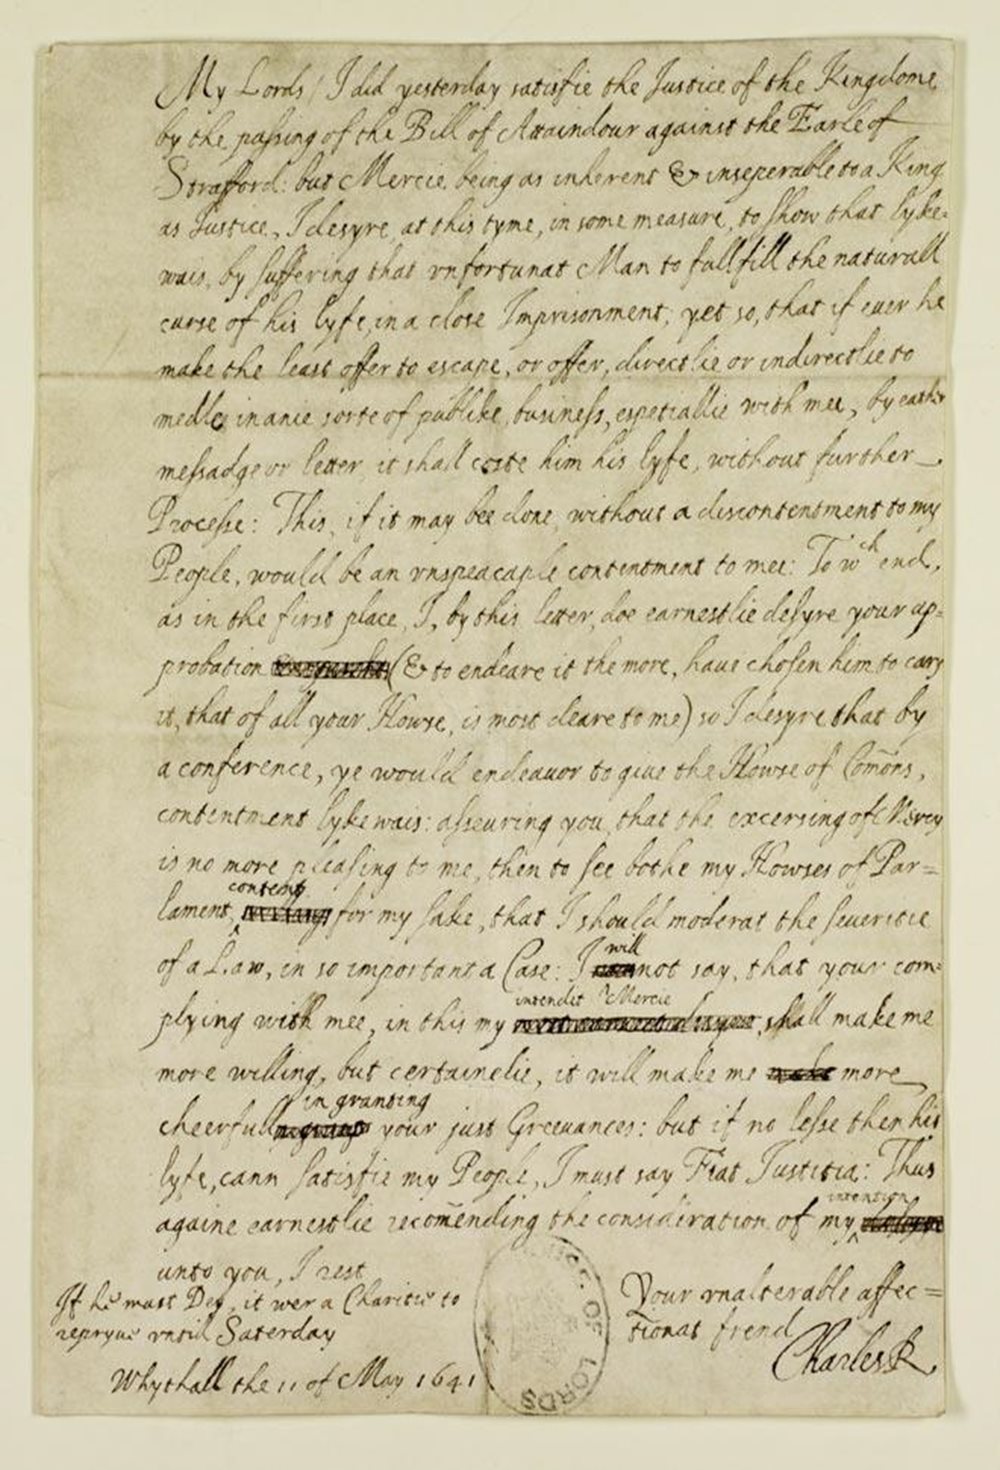 My Lords / I did yesterday satisfie the Justice of the Kingdome,
by the passing of the Bill of Attaindour against the Earle of
Strafford: but Mercie being as inherent & inseperable to a King
as Justice, I desyre, at this tyme, in some measure, to show that lyke=
wais, by suffering that unfortunat Man to fullfill the naturall
curse of his lyfe, in a close Imprisonment; yet so, that if ever he
make the least offer to escape, or offer, directlie or indirectlie to
medle, in anie sorte of publike business, espetiallie with mee, by eather
messadge or letter, it shall coste him his lyfe, without further
Processe: This, if it may bee done, without a discontentment to my
People, would be an unspeacaple contentment to mee: To wch end,
as in the first place, I, by this letter, doe earnestlie desyre your ap=
probation (& to endeare it the more, have chosen him to cary
it, that of all your Howse, is most deare to me) so I desyre that by
a conference, ye would endeavor to give the Howse of Com̃ons,
contentment lykewais: asseuring you, that the excersing of Mercy
is no more pleasing to me, then to see bothe my Howses of Par=
content
lament, for my sake, that I should moderat the severitie
will
of a Law, in so important a Case: I not say, that your com=
intendit Mercie
plying with mee, in this my shall make me
more willing, but certainelie, it will make me more
in granting
cheerfull your just Greevances: but if no lesse then his
lyfe, cann satisfie my People, I must say Fiat Justitia: Thus
intention
againe earnestlie recom̃ending the consideration of my
unto you, I rest
Your unalterable affec=
tionat frend
Charles R
If he must Dey, it wer a Charitie to
repryve until Saterday
Whythall the 11 of May 1641
OF LORDS